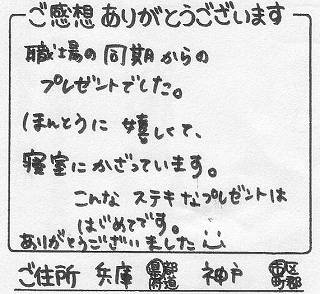 ご感想 ありがとうございます
職場の同期からの
プレゼントでした。
ほんとうに 嬉しくて、
寝室にかざっています。
こんな ステキなプレゼントは
はじめてです。
ありがとうございました
ご住所 兵庫 都道府県 神戸 市区町郡